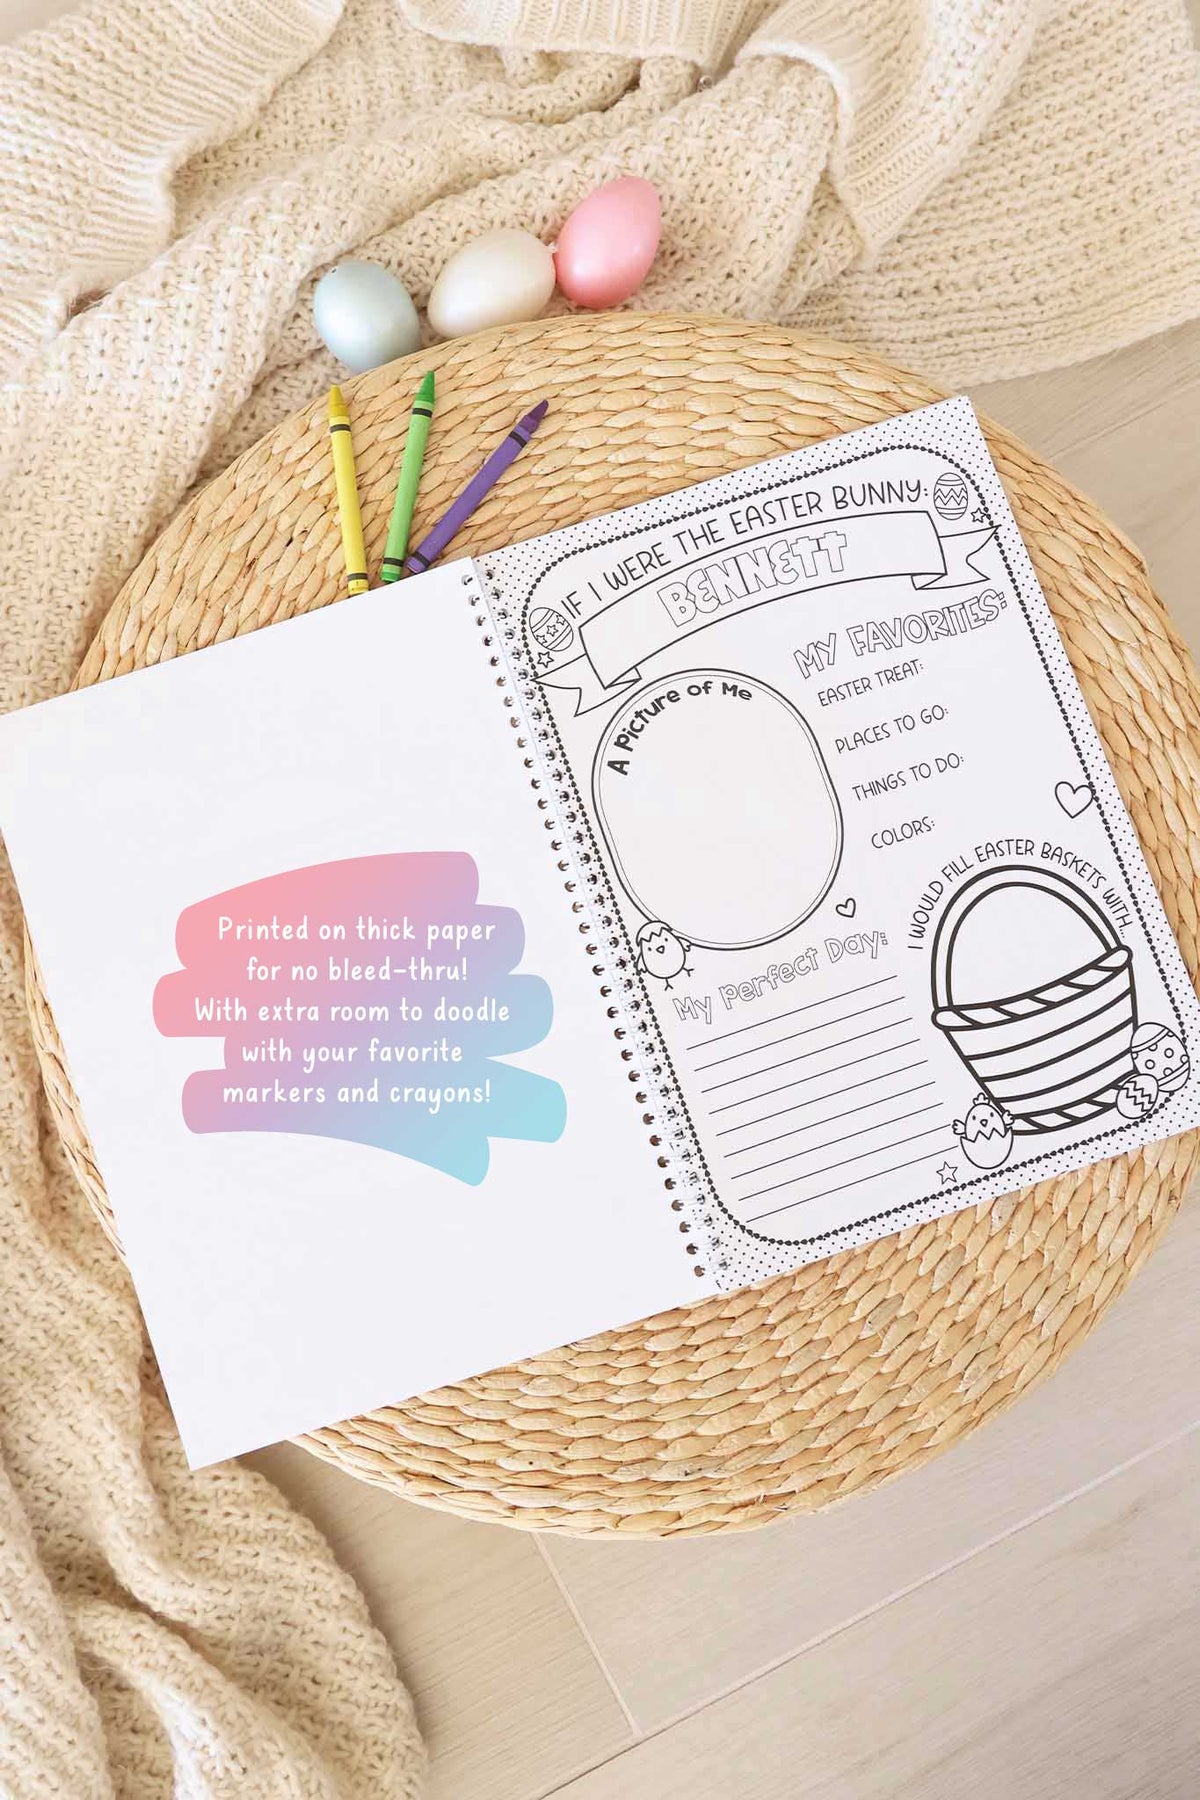 Printed on thick paper
for no bleed-thru!
With extra room to doodle
with your favorite
markers and crayons!
IF I WERE THE EASTER BUNNY:
BENNETT
A Picture of Me
MY FAVORITES:
EASTER TREAT:
PLACES TO GO:
THINGS TO DO:
COLORS:
My Perfect Day:
I WOULD FILL EASTER BASKETS WITH...